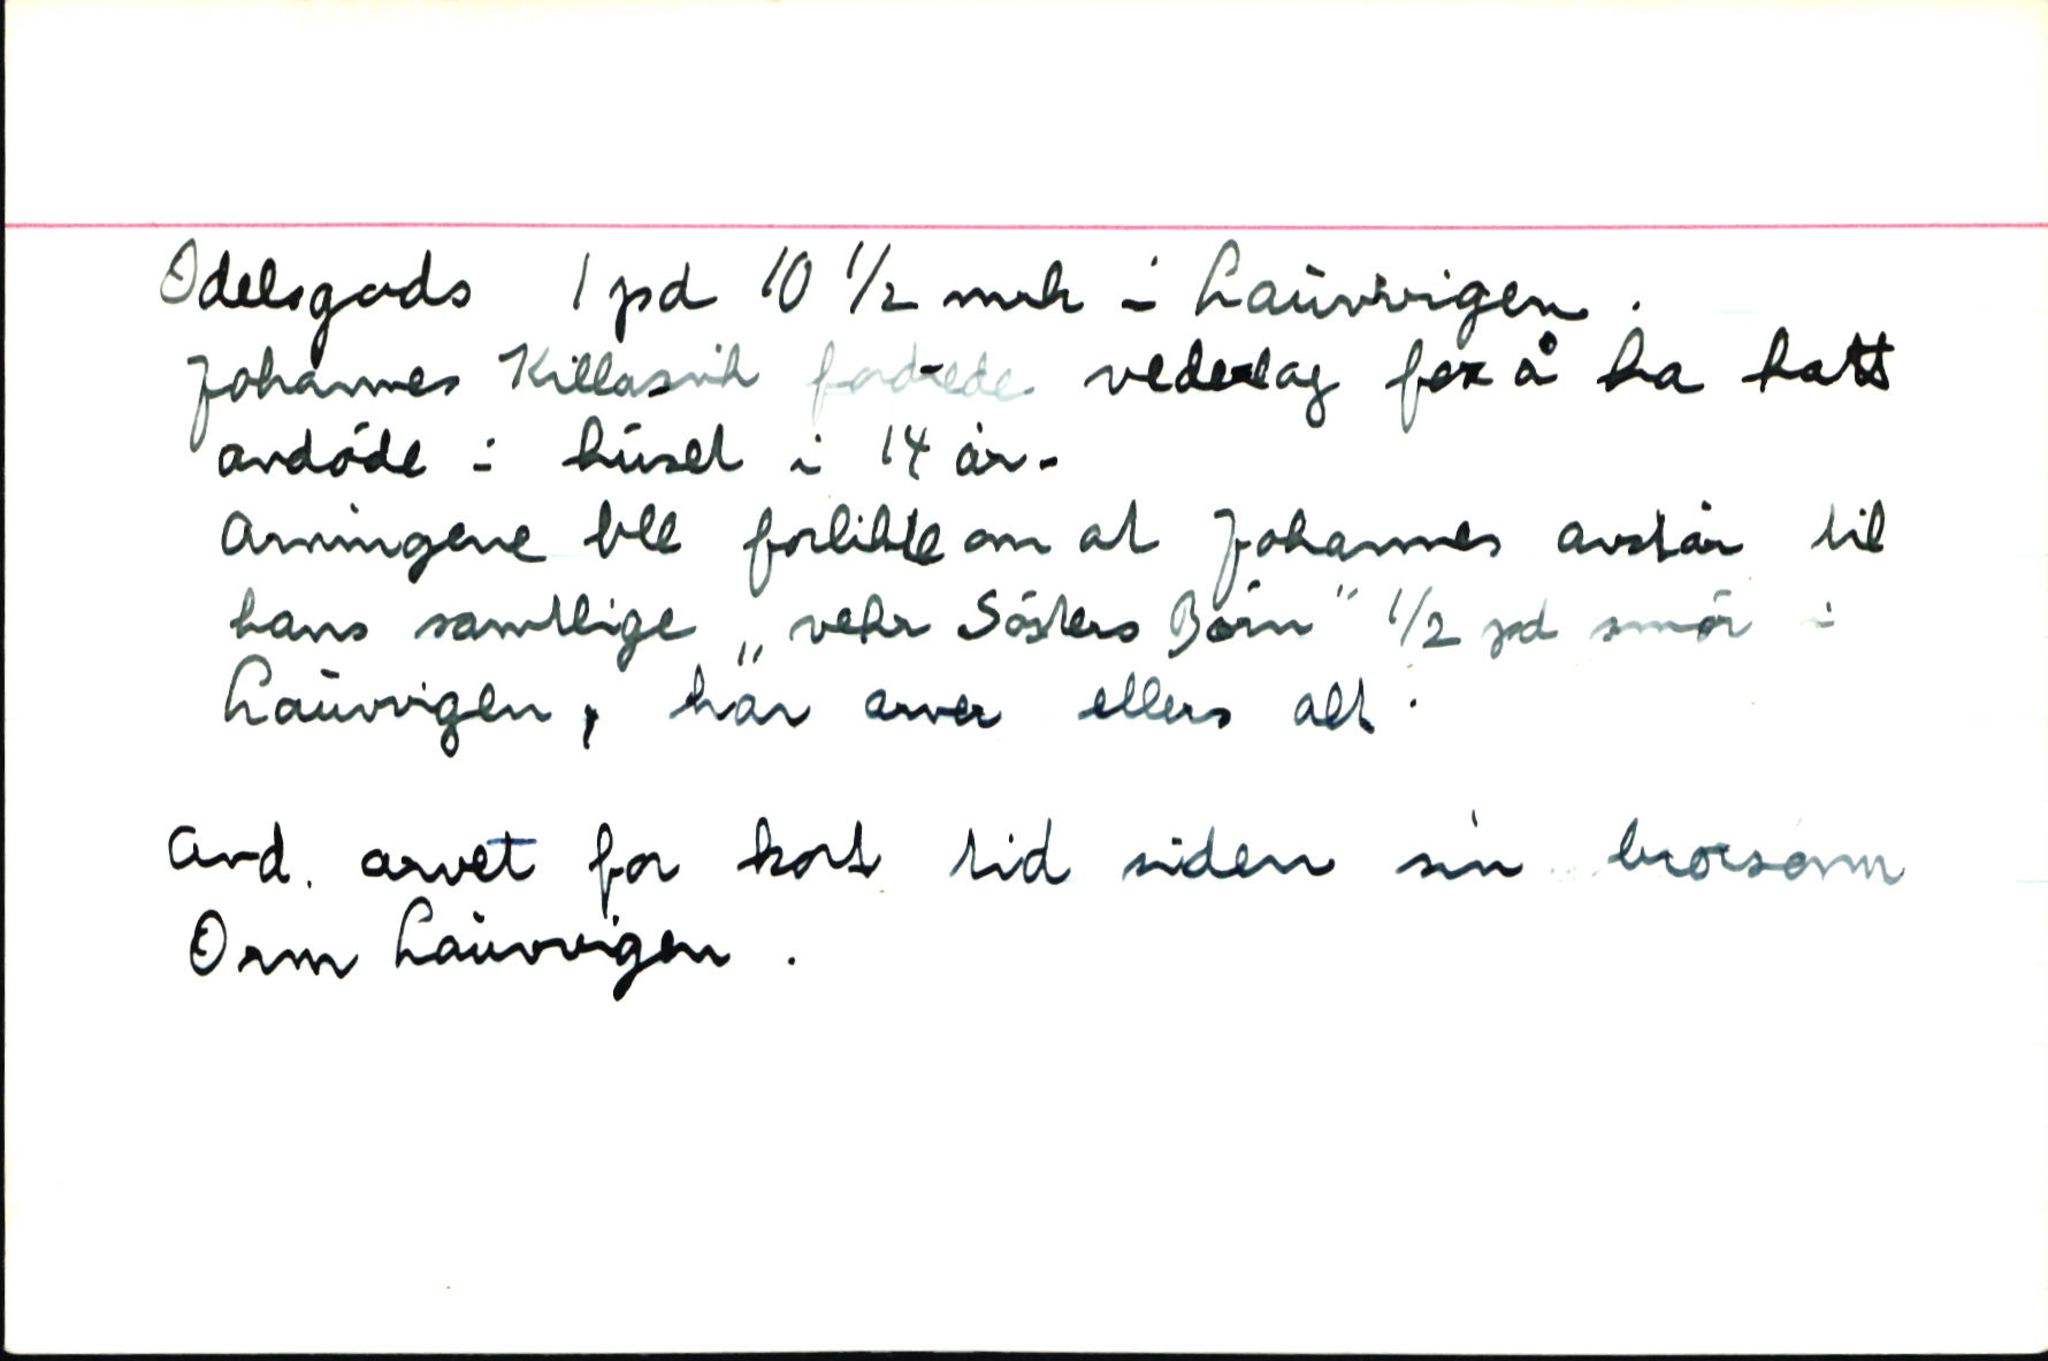 Odelsgods 1 pd 10 1/2 mrk i Lauvvigen.
Johannes Killasvik fordrede vederlag for å ha hatt
avdöde i huset i 14 år.
Arvingene ble forlikte om at Johannes avstår til
hans samtlige „vehr Sösters Börn" 1/2 pd smör i
Lauvvigen, han arver ellers alt.
Avd. arvet for kort tid siden sin brorsønn
Orm Lauvvigen.